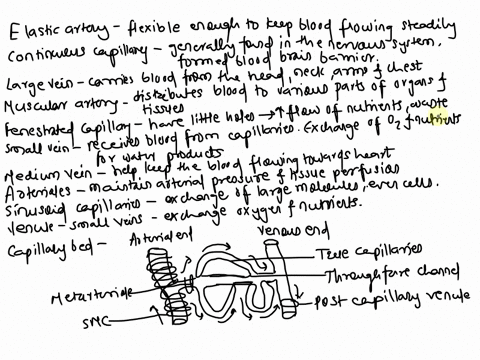 Elastic artery - flexible enough to keep blood flowing steadily
Continuous capillary - generally found in the nervous system,
formed blood brain barrier.
Large vein - carries blood from the head, neck, arms & chest
Muscular artery - distributes blood to various parts of organs &
tissues
Fenestrated capillary - have little holes → ↑ flow of nutrients, waste
Small vein - receives blood from capillaries. Exchange of O2 & nutrients
for water products
Medium vein - help keep the blood flowing towards heart
Arterioles - maintain arterial pressure & tissue perfusion
Sinusoid capillaries - exchange of large molecules, even cells.
Venule - small veins - exchange oxygen & nutrients.
Capillary bed -
Arterial end
Venous end
True capillaries
Throughfare channel
Metarteriole
Post capillary venule
SMC